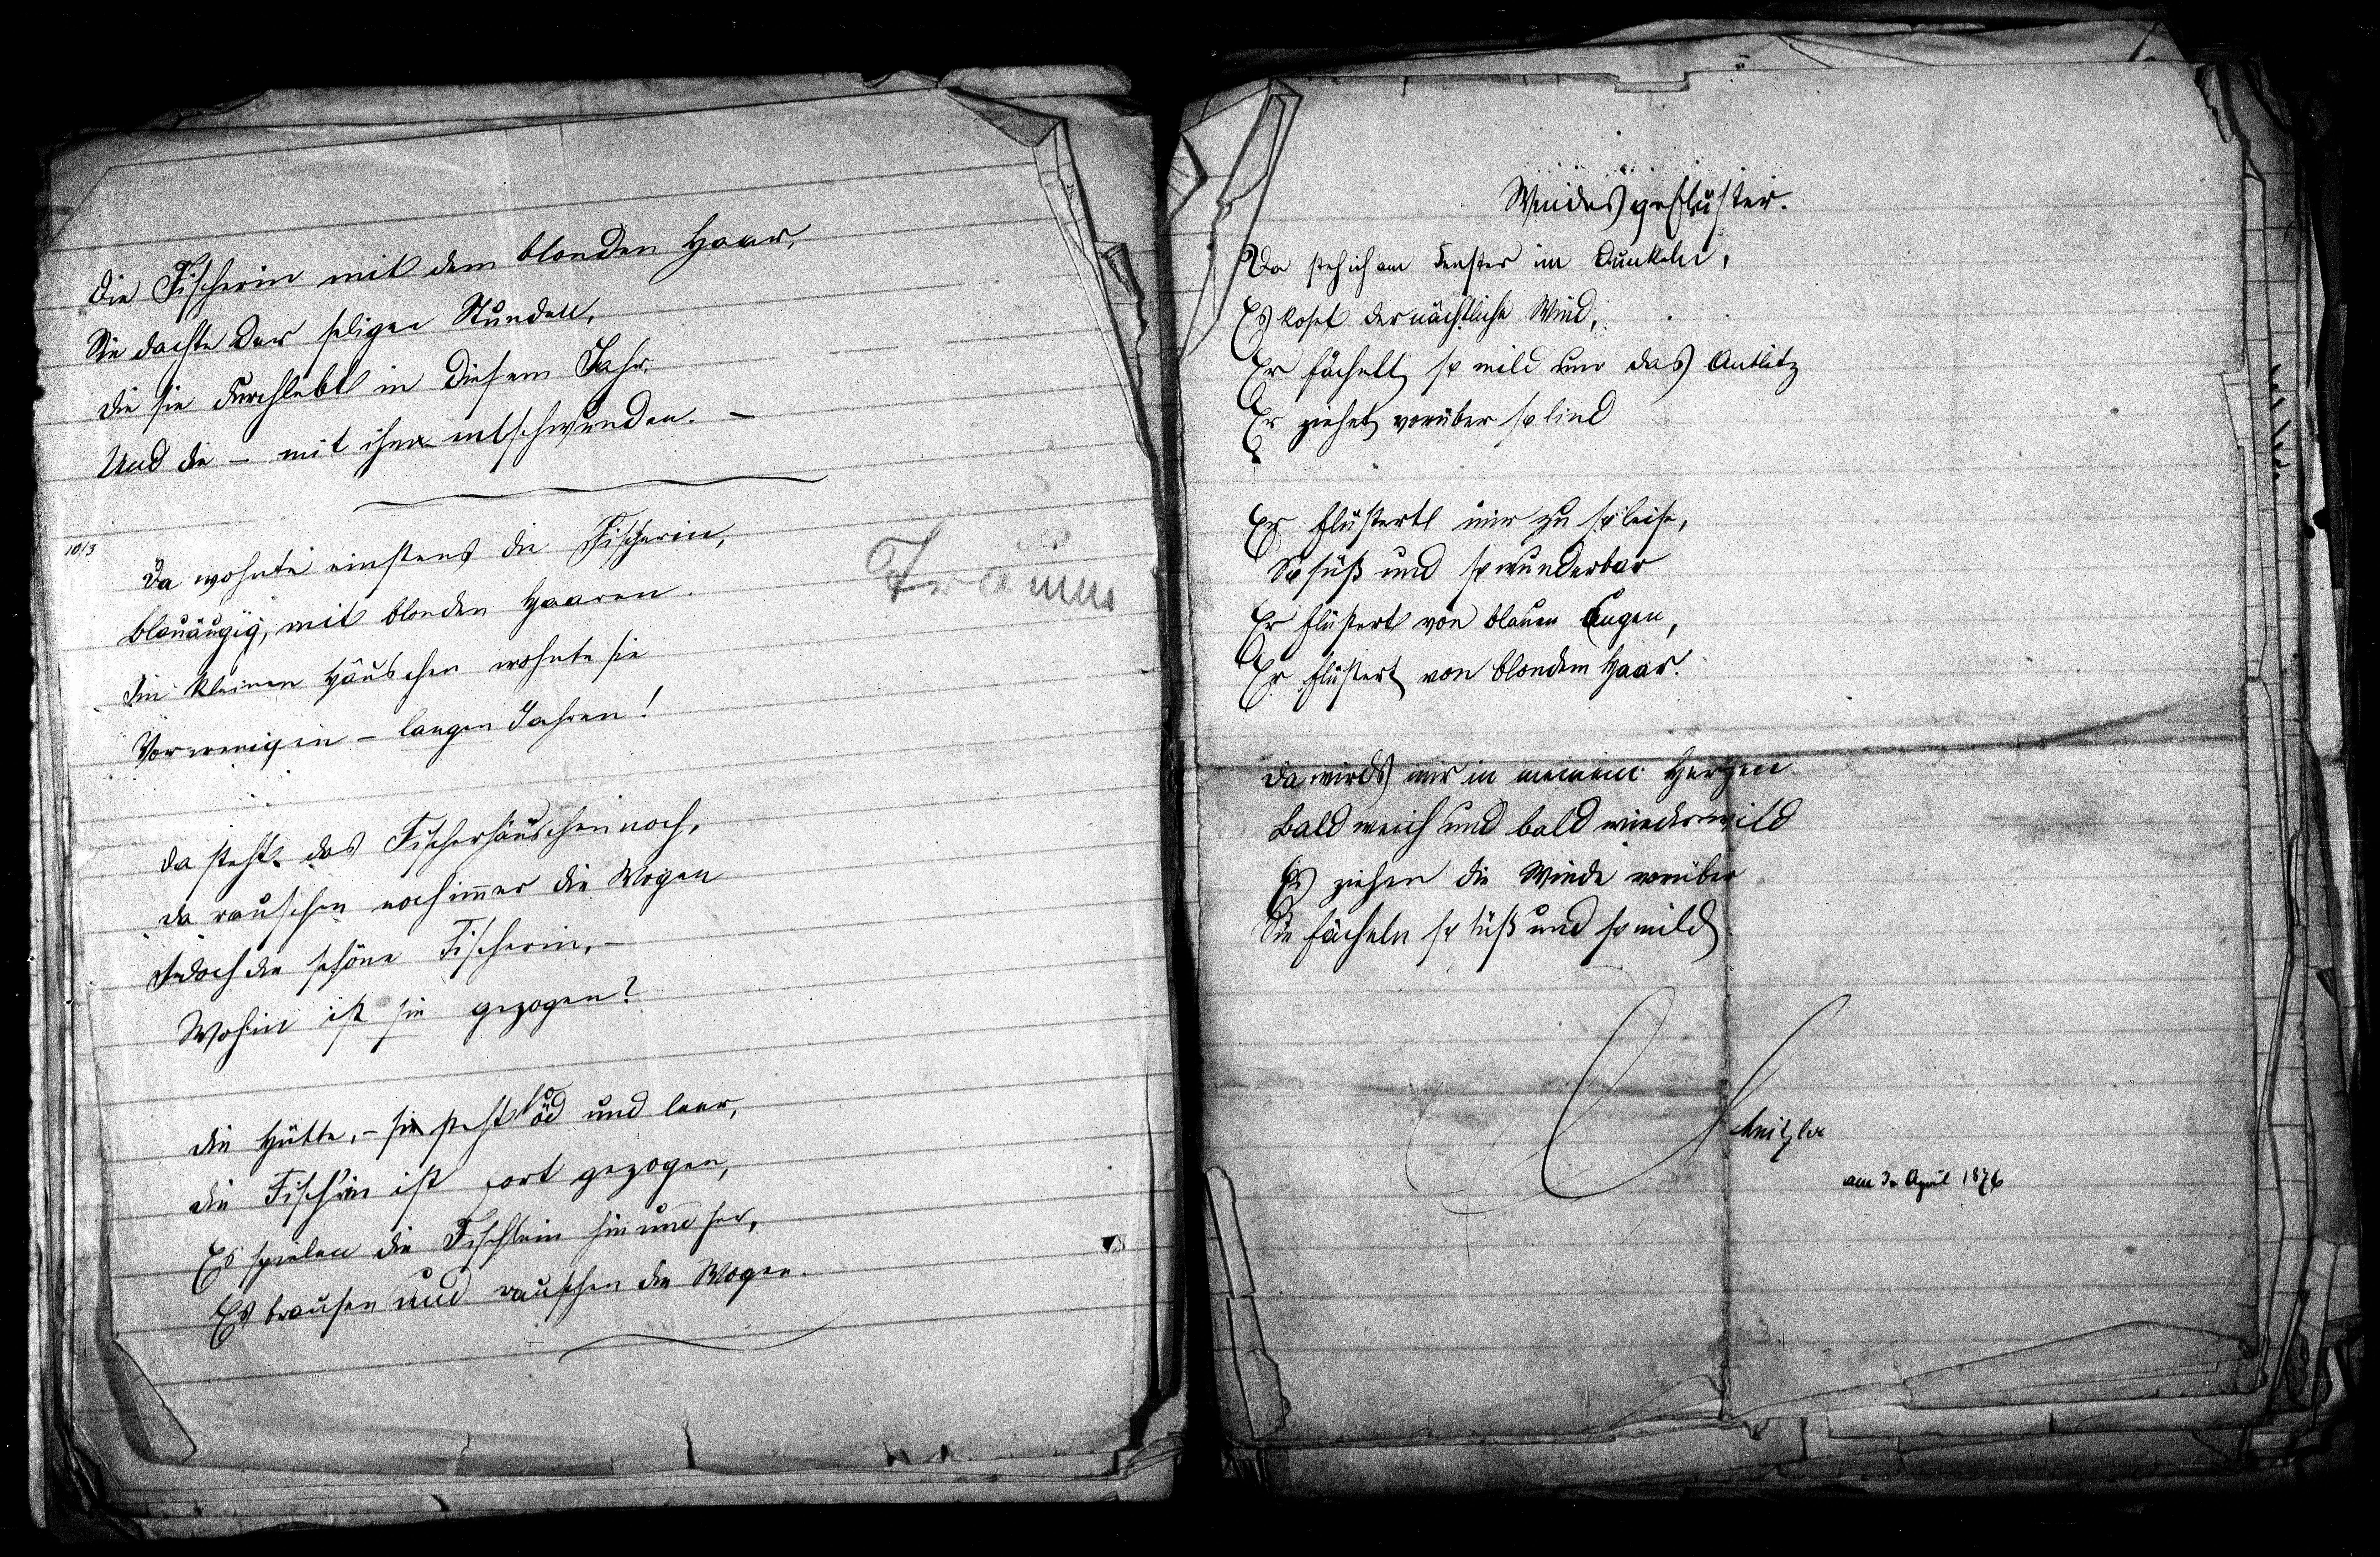 Die Fischerin mit dem blonden Haar,
Sie dachte der seligen Stunden,
Die sie durchlebt in diesem Jahr,
Und die – mit ihm entschwunden. –
10/3
Da wohnte einstens die Fischerin,
Blauäugig, mit blonden Haaren.
Im kleinen Häuschen wohnte sie
Vor wenigen – langen Jahren!
Träume
Da steht das Fischerhäuschen noch,
Da rauschen noch immer die Wogen
Jedoch die schöne Fischerin, –
Wohin ist sie gezogen?
Die Hütte, – sie steht so öd und leer,
Die Fisch'rin ist fort gezogen,
Es spielen die Fischlein hin und her,
Es brausen und rauschen die Wogen.
Windesgeflüster.
Da steh ich am Fenster im Dunkeln,
Es koset der nächtliche Wind,
Er fächelt so mild um das Antlitz
Er ziehet vorüber so lind
Er flüstert mir zu so leise,
So süß und so wunderbar
Er flüstert von blauen Augen,
Er flüstert von blondem Haar.
Da wirds mir in meinem Herzen
Bald weich und bald wieder wild
Es ziehen die Winde vorüber
Sie fächeln so süß und so mild
A Schnitzler
am 3. April 1876